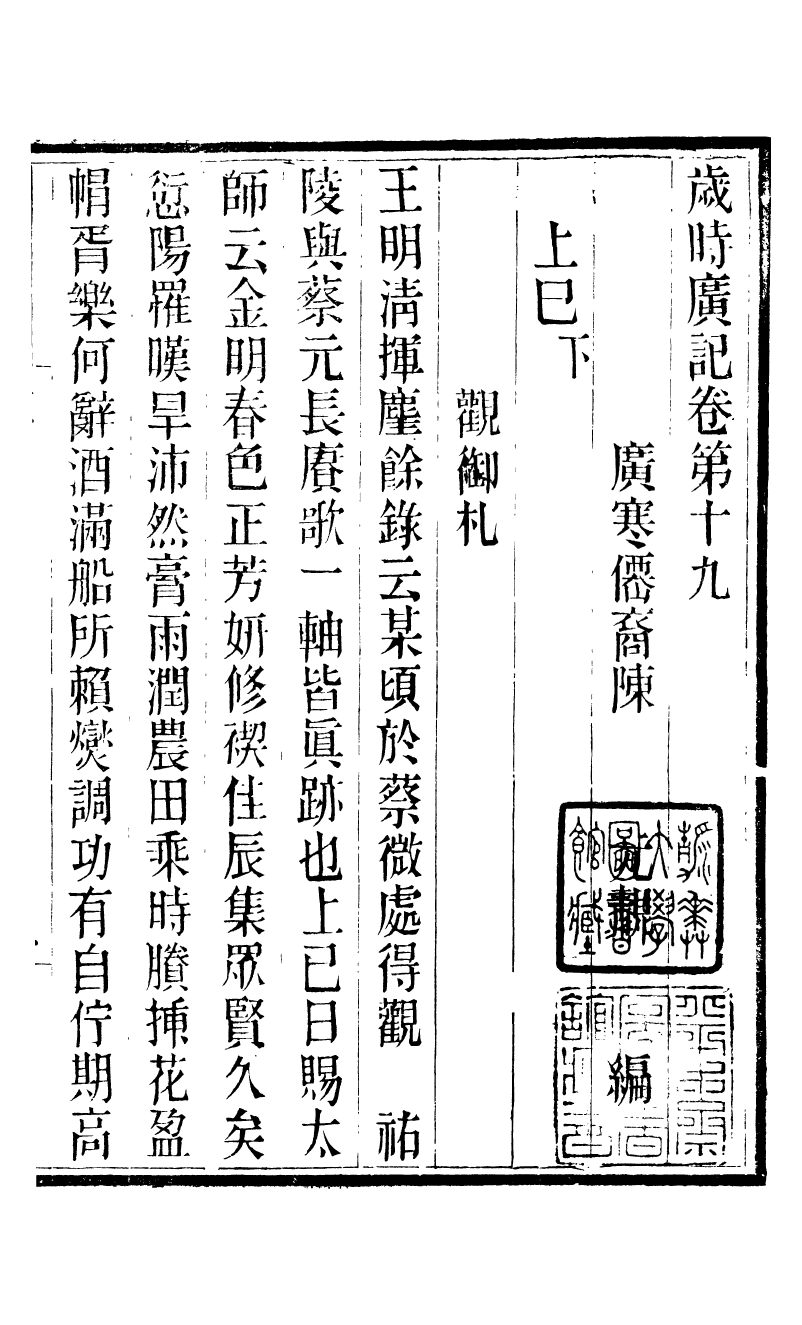 歲時廣記卷第十九
廣寒僊裔陳
編
上巳下
觀御札
王明淸揮麈餘錄云某頃於蔡微處得觀 祐
陵與蔡元長賡歌一軸皆眞跡也上巳日賜太
師云金明春色正芳妍修禊佳辰集眾賢久矣
愆陽罹嘆旱沛然膏雨潤農田乘時賸揷花盈
帽胥樂何辭酒滿船所賴爕調功有自佇期高